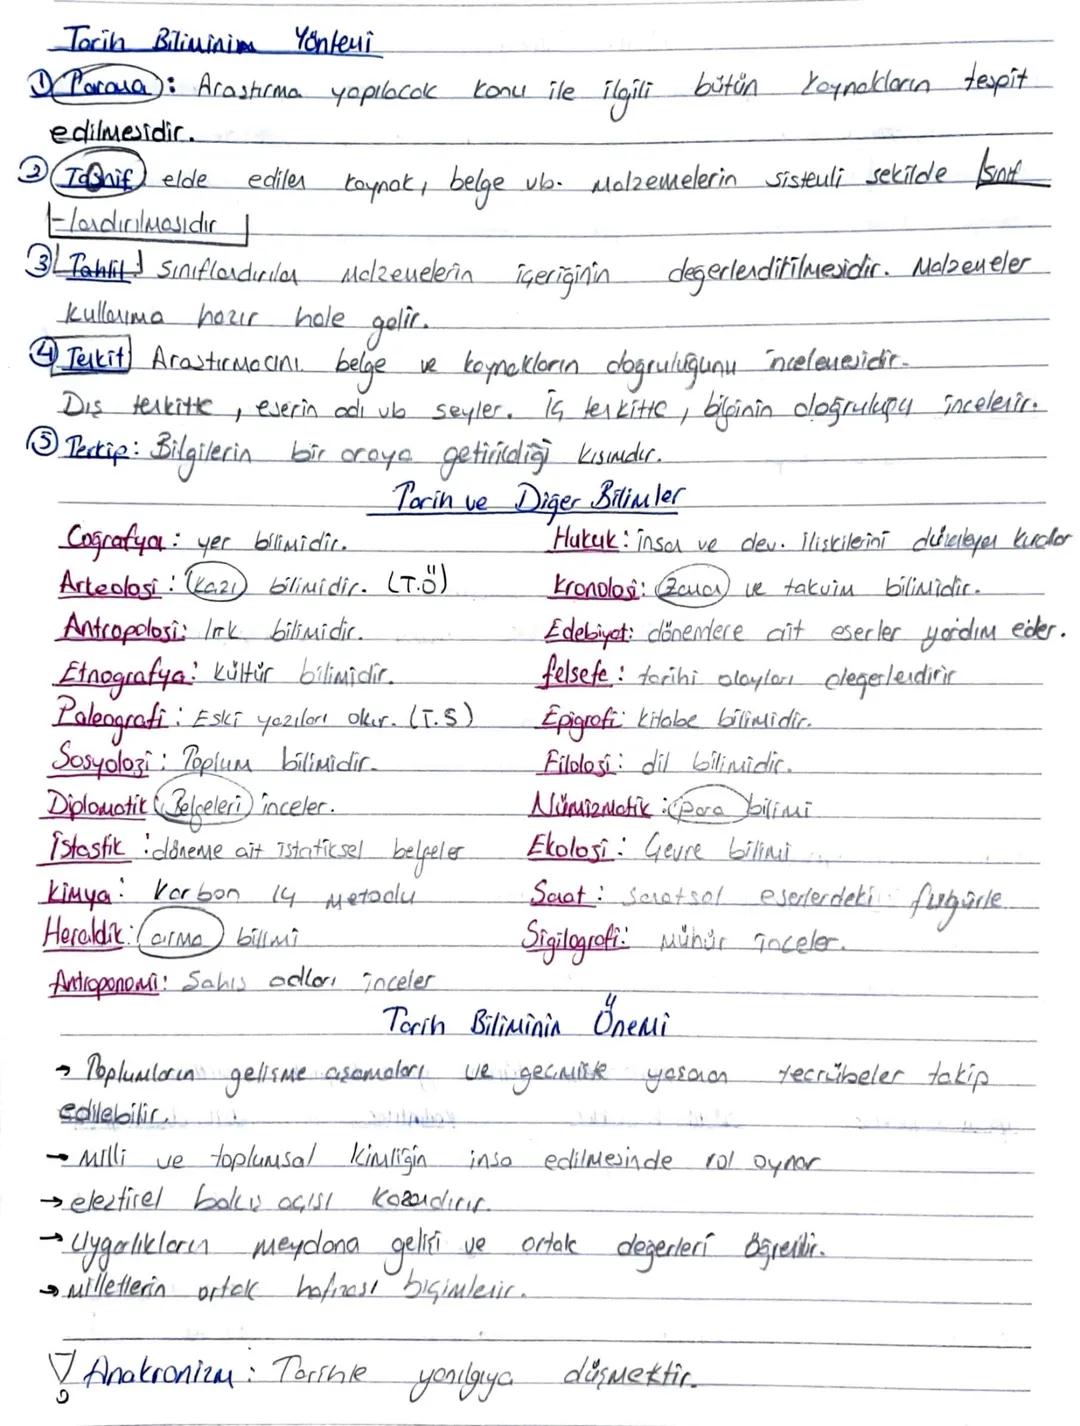 Tarih Biliminin Yöntemi
① Tarama: Araştırma yapılacak konu ile ilgili bütün kaynakların tespit
edilmesidir.
② Tasnif elde edilen kaynak, belge vb. malzemelerin sistemli şekilde sınıf
-landırılmasıdır
③ Tahlil sınıflandırılan malzemelerin içeriğinin değerlendirilmesidir. Malzemeler
kullanıma hazır hale gelir.
④ Tenkit Araştırmacını belge ve kaynakların doğruluğunu incelemesidir.
Dış tenkitte, eserin adı vb şeyler. İç tenkitte, bilginin doğruluğu incelenir.
⑤ Terkip: Bilgilerin bir araya getirildiği kısımdır.
Tarih ve Diğer Bilimler
Coğrafya: yer bilimidir. Hukuk: insan ve dev. ilişkilerini düzenleyen kurallar
Arkeoloji: Kazı bilimidir. (T.Ö) Kronoloji: Zaman ve takvim bilimidir.
Antropoloji: Irk bilimidir. Edebiyat: dönemlere ait eserler yardım eder.
Etnografya: Kültür bilimidir. felsefe: tarihi olayları değerlendirir
Paleografi: Eski yazıları okur. (T.S) Epigrafi: kitabe bilimidir.
Sosyoloji: Toplum bilimidir. Filoloji: dil bilimidir.
Diplomatik Belgeleri inceler. Nümizmatik: para bilimi
İstastik: döneme ait istatiksel belgeler Ekoloji: Çevre bilimi
Kimya: Karbon 14 metodu Sanat: sanatsal eserlerdeki
Heraldik: arma bilimi Sigilografi: mühür inceler.
Antroponomi: Şahıs adları inceler
Tarih Biliminin Önemi
→ Toplumların gelişme aşamaları ve geçmişte yaşanan tecrübeler takip
edilebilir.
→ Milli ve toplumsal kimliğin inşa edilmesinde rol oynar
→ eleştirel bakış açısı kazandırır.
→ Uygarlıkların meydana gelişi ve ortak değerleri öğrenilir.
→ Milletlerin ortak hafızası biçimlenir.
Anakronizm: Tarihle yanılgıya düşmektir.